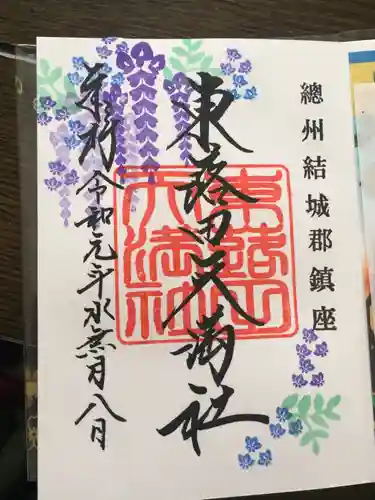 總州結城郡鎮座
東蕗田天満社
東蕗田天満社
奉拝 令和元年水無月八日